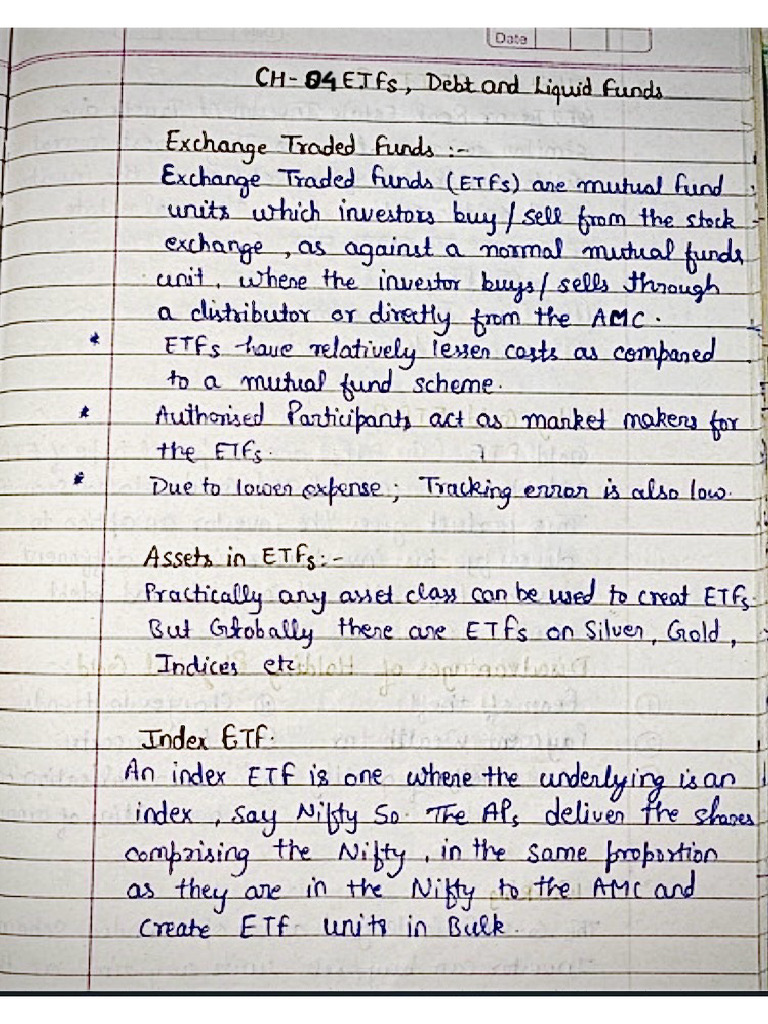 Date
CH-04 ETFs, Debt and Liquid Funds
Exchange Traded Funds :-
Exchange Traded funds (ETFs) are mutual fund
units which investors buy/sell from the stock
exchange, as against a normal mutual funds
unit, where the investor buys/sells through
a distributor or directly from the AMC.
* ETFs have relatively lesser costs as compared
to a mutual fund scheme.
* Authorised Participants act as market makers for
the ETFs.
* Due to lower expense; Tracking error is also low.
Assets in ETFs:-
Practically any asset class can be used to creat ETFs.
But Globally there are ETFs on Silver, Gold,
Indices etc
Index ETF:
An index ETF is one where the underlying is an
index, say Nifty 50. The APs deliver the shares
comprising the Nifty, in the same proportion
as they are in the Nifty to the AMC and
create ETF units in Bulk.